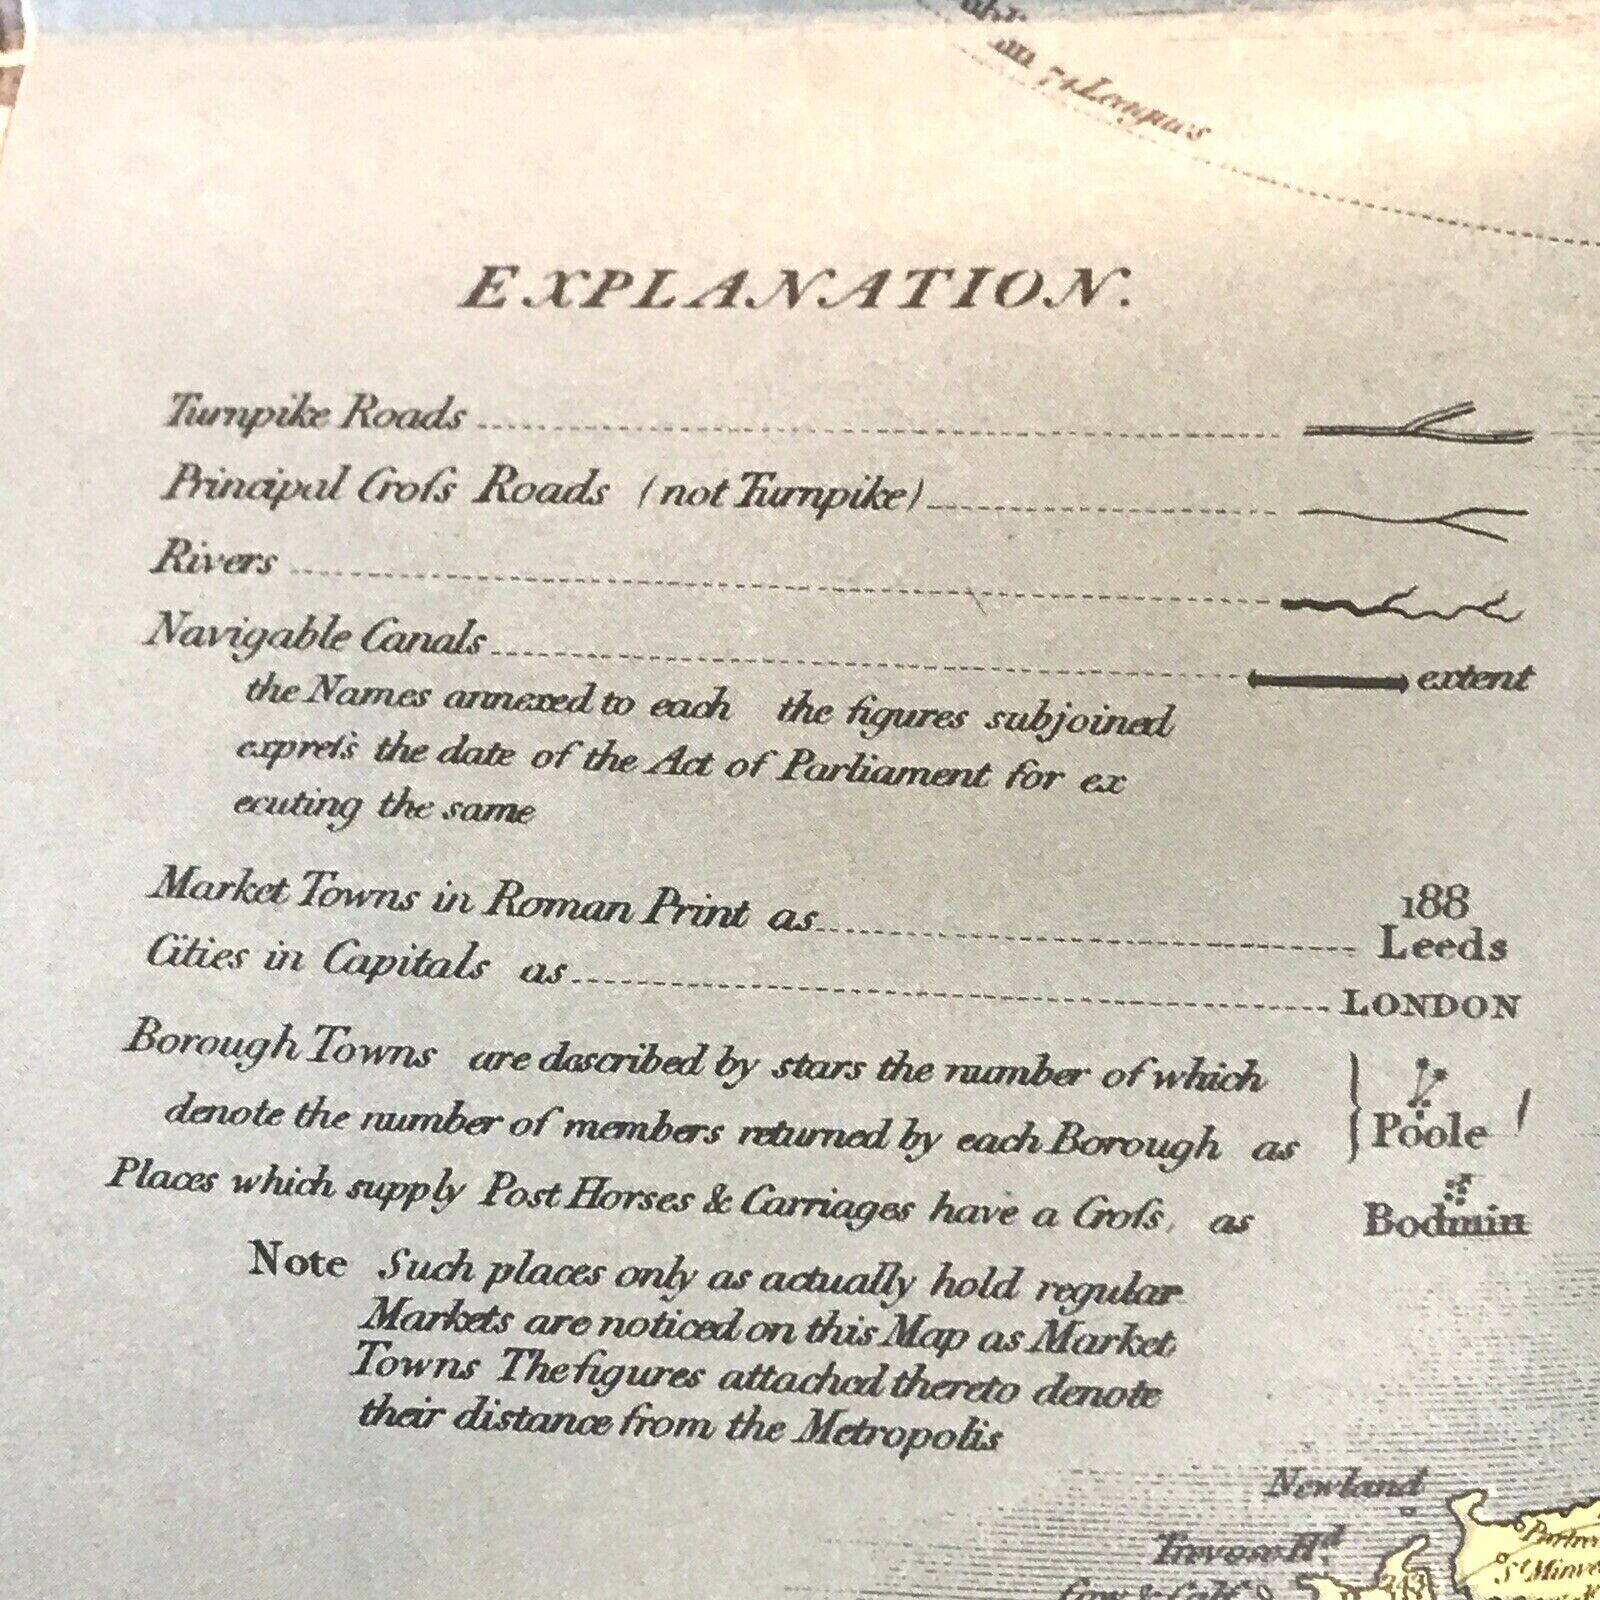 74 Leagues
EXPLANATION.
Turnpike Roads
Principal Croſs Roads (not Turnpike)
Rivers
Navigable Canals extent
the Names annexed to each the figures subjoined
expreſs the date of the Act of Parliament for ex
ecuting the same
188
Market Towns in Roman Print as Leeds
Cities in Capitals as LONDON
Borough Towns are described by stars the number of which
denote the number of members returned by each Borough as } Poole
Places which supply Post Horses & Carriages have a Croſs, as Bodmin
Note Such places only as actually hold regular
Markets are noticed on this Map as Market
Towns The figures attached thereto denote
their distance from the Metropolis
Newland
Trevose Hd
St Minve